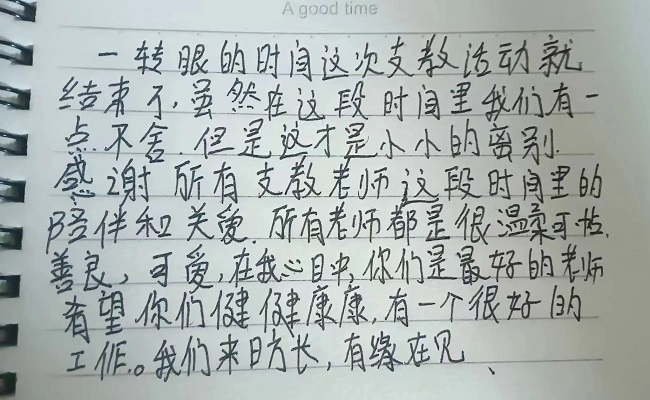 A good time
一转眼的时间这次支教活动就
结束了,虽然在这段时间里我们有一
点不舍.但是这才是小小的离别.
感谢所有支教老师这段时间里的
陪伴和关爱.所有老师都是很温柔可
善良,可爱,在我心目中,你们是最好的老师
希望你们健健康康,有一个很好的
工作。我们来日方长,有缘在见、